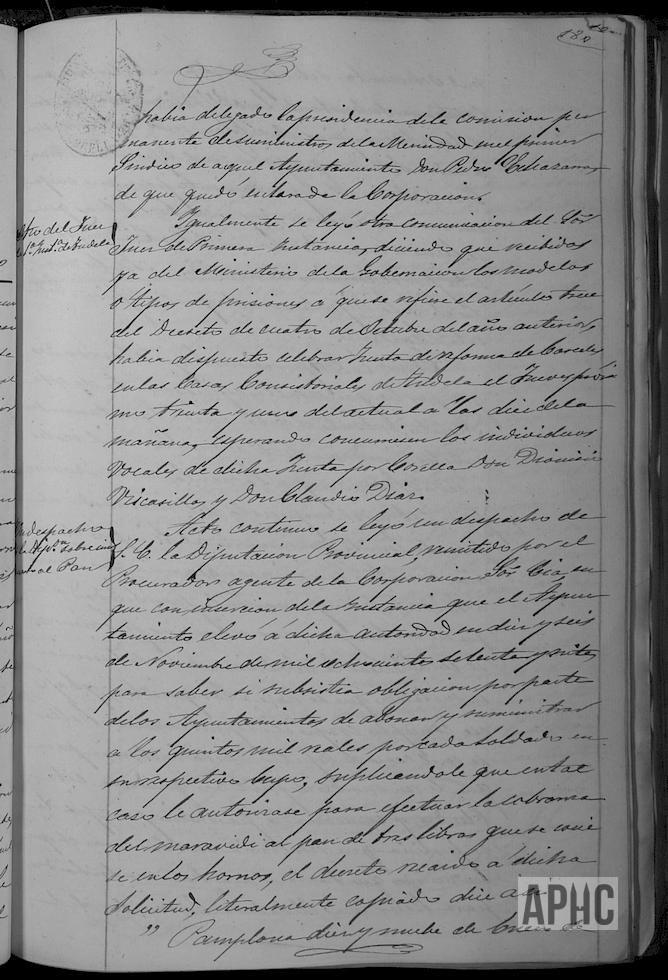 180
habia delegado la presidencia de la comision per
manente de suministros de la Merindad en el primer
Síndico de aquel Ayuntamiento Don Pedro
de que quedó enterada la Corporacion.
Otro del Juez
de 1ª Inst.ª de Tudela
Igualmente se leyó otra comunicacion del Sõr
Juez de Primera Instancia, diciendo que recibidos
ya del Ministerio de la Gobernacion los modelos
ó tipos de prisiones á que se refiere el artículo trece
del Decreto de cuatro de Octubre del año anterior,
habia dispuesto celebrar Junta de reforma de Carceles
en las Casas Consistoriales de Tudela el Jueves próxi
mo treinta y uno del actual a las diez de la
mañana, esperando concurriesen los individuos
Vocales de dicha Junta por Corella Don Dionisio
Viscasillas y Don Claudio Diaz.
Un despacho
de la Dip.on sobre im
al Pan
Acto continuo se leyó un despacho de
S. E. la Diputacion Provincial, remitido por el
Procurador agente de la Corporacion Sõr Cia, en
que con insercion de la Instancia que el Ayun
tamiento elevó á dicha autoridad en diez y seis
de Noviembre de mil ochocientos setenta y siete,
para saber si subsistia obligacion por parte
de los Ayuntamientos de abonar y suministrar
a los quintos mil reales por cada soldado en
su respectivo cupo, suplicandole que en tal
caso le autorizase para efectuar la cobranza
del maravedi al pan de tres libras que se cue
se en los hornos, el decreto recaido á dicha
Solicitud, literalmente copiado dice asi:
" Pamplona diez y nueve de Enero de
APHC